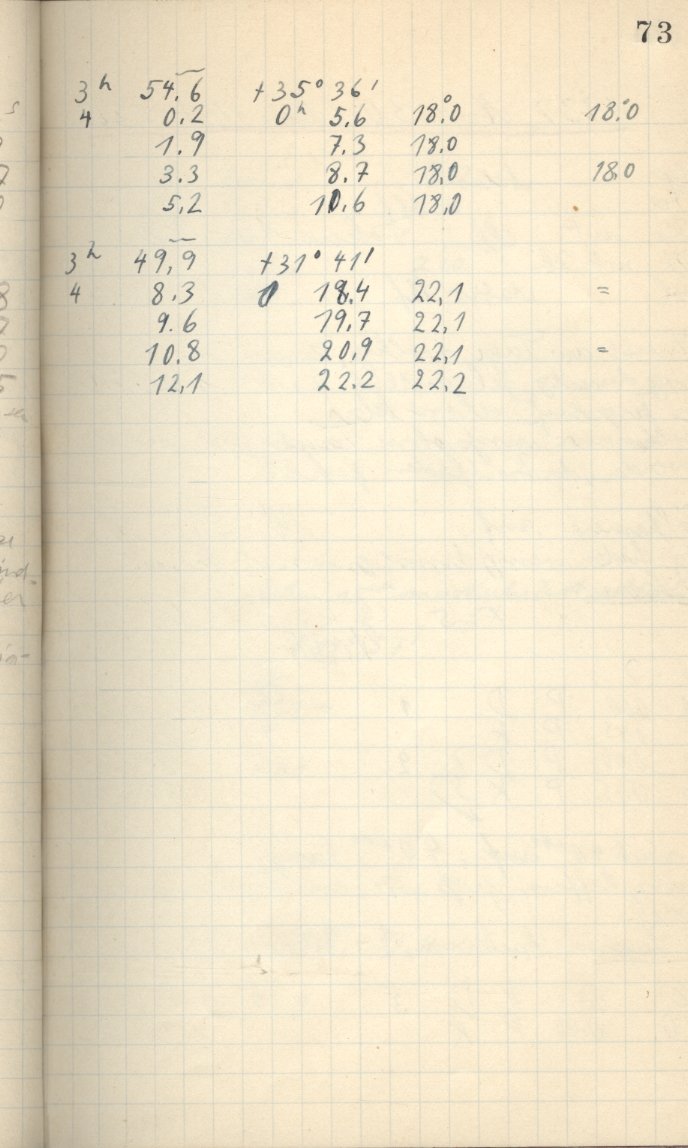 73
3h 54.6 +35° 36'
4 0.2 0h 5.6 18°.0 18°.0
1.9 7.3 18.0
3.3 8.7 18,0 18,0
5,2 10.6 18,0
3h 49,9 +31° 41'
4 8.3 0 18.4 22,1 =
9.6 19,7 22,1
10.8 20,9 22,1 =
12,1 22.2 22,2